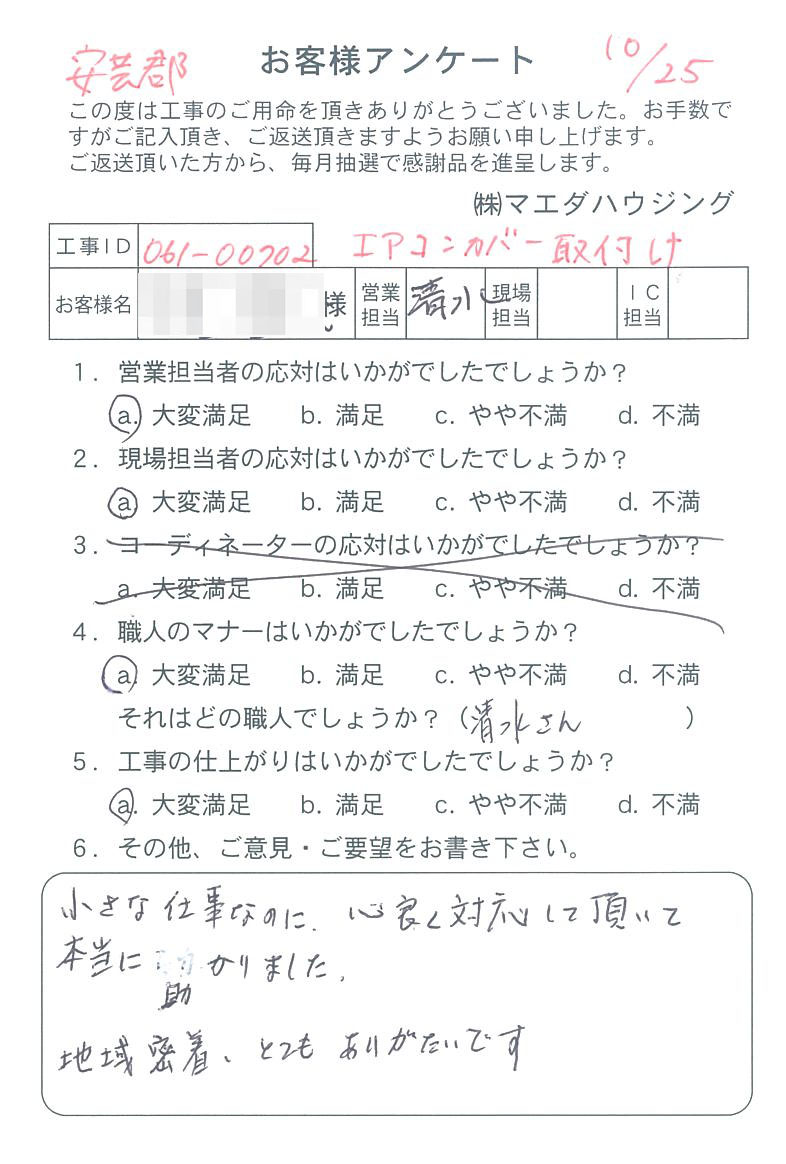 安芸郡 お客様アンケート 10/25
この度は工事のご用命を頂きありがとうございました。お手数で
すがご記入頂き、ご返送頂きますようお願い申し上げます。
ご返送頂いた方から、毎月抽選で感謝品を進呈します。
㈱マエダハウジング
工事ID 061-00702 エアコンカバー取付け
お客様名 様 営業担当 清水 現場担当 IC担当
1. 営業担当者の応対はいかがでしたでしょうか？
a. 大変満足 b. 満足 c. やや不満 d. 不満
2. 現場担当者の応対はいかがでしたでしょうか？
a. 大変満足 b. 満足 c. やや不満 d. 不満
3. コーディネーターの応対はいかがでしたでしょうか？
a. 大変満足 b. 満足 c. やや不満 d. 不満
4. 職人のマナーはいかがでしたでしょうか？
a. 大変満足 b. 満足 c. やや不満 d. 不満
それはどの職人でしょうか？（清水さん）
5. 工事の仕上がりはいかがでしたでしょうか？
a. 大変満足 b. 満足 c. やや不満 d. 不満
6. その他、ご意見・ご要望をお書き下さい。
小さな仕事なのに、心良く対応して頂いて
本当に助かりました。
地域密着、とてもありがたいです